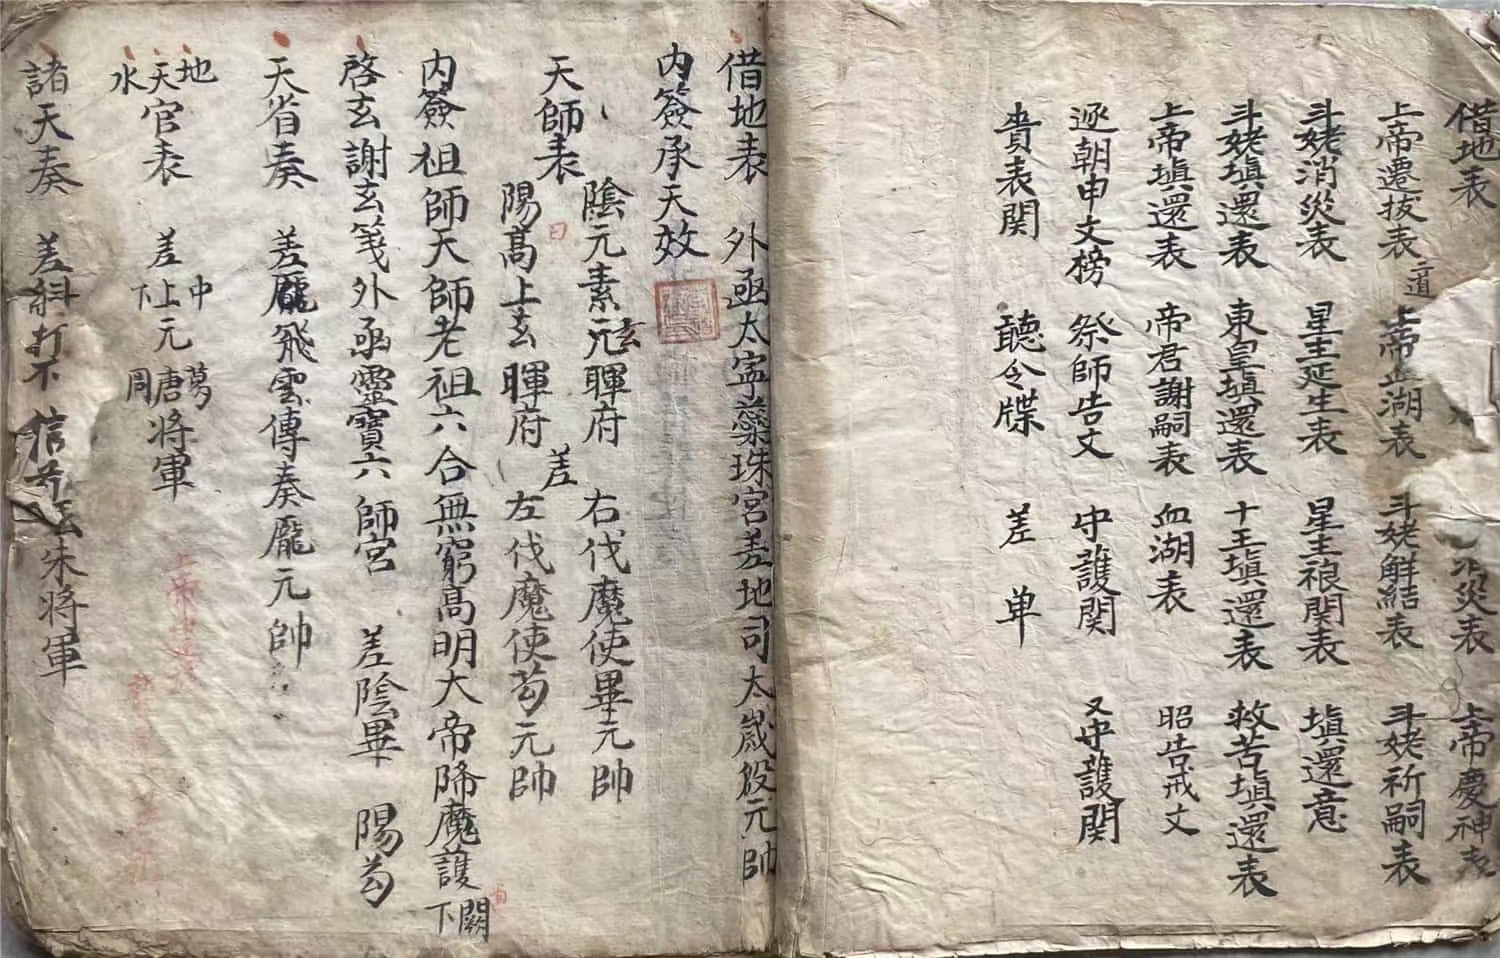 借地表 消災表 上帝慶神表
上帝遷拔表 上帝血湖表 斗姥解結表 斗姥祈嗣表
道
斗姥消災表 星主延生表 星主祿関表 塡還意
斗姥塡還表 東皇塡還表 十王塡還表 救苦塡還表
上帝塡還表 帝君謝嗣表 血湖表 昭告戒文
逐朝申文榜 祭師告文 守護関 又守護関
賫表関 聽令牒 差单
借地表 外函太寍蘂珠宮差地司太歲殷元帥
内簽承天效
天師表 陰元素元玄暉府 差 右伐魔使畢元帥
陽高上玄暉府 左伐魔使茍元帥
内簽祖師天師老祖六合無窮高明大帝降魔護
下闕
啓玄謝玄箋外函靈寶六師宮 差陰畢 陽茍
天省奏 差龐飛雲傳奏龐元帥
地天水官表 差中上下元葛唐周將軍
諸天奏 差 打不信 朱將軍